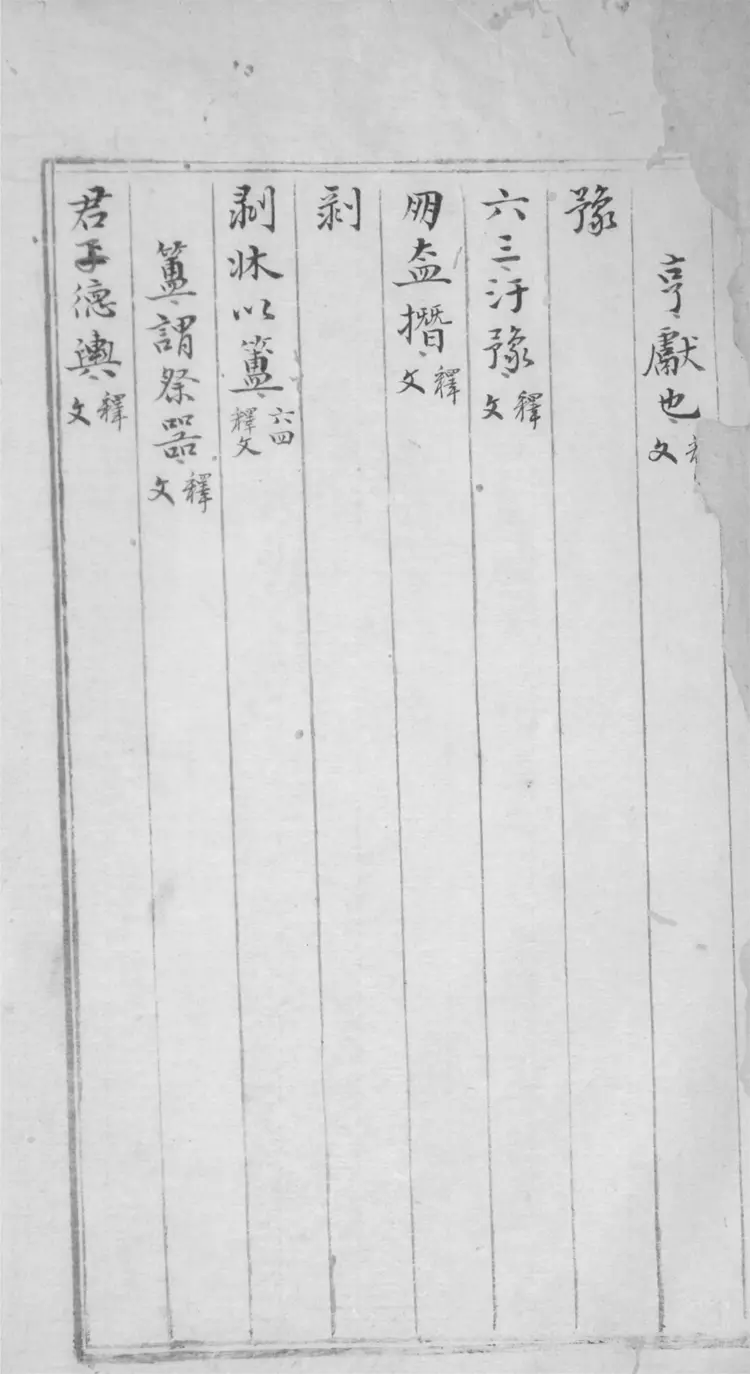 亨獻也文
豫
六三汙豫釋文
朋盇撍釋文
剥
剥牀以簠六四釋文
簠謂祭器釋文
君子徳輿釋文